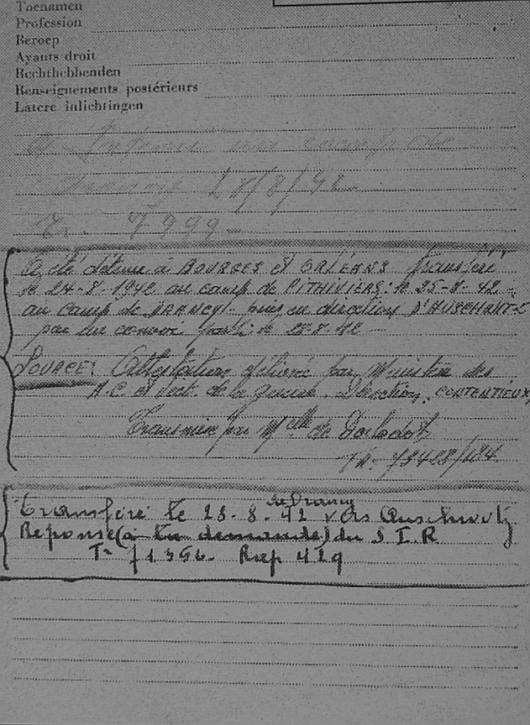 Toenamen
Profession
Beroep
Ayants droit
Rechthebbenden
Renseignements postérieurs
Latere inlichtingen
au camp de
28/8/42
Tr. 7999-
A été détenu à BOURGES et ORLÉANS transféré
le 24-8-1942 au camp de PITHIVIERS: le 25-8-42
au camp de DRANCY- puis en direction D'AUSCHWITZ
par un convoi parti le 28-8-42
SOURCE: Attestation délivrée par Ministère des
A.C et Vict. de la guerre. Direction. CONTENTIEUX,
Transmise par Melle de
TR. 78428/184
de Drancy
transféré le 28-8-42 vers Auschwitz
Réponse (à la demande) du S I R
Tr 71366- Rap 429